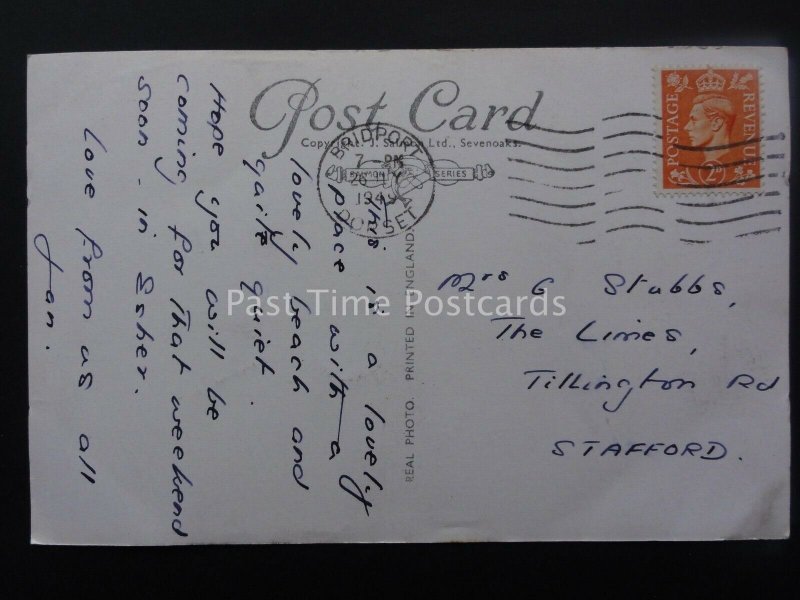 Post Card
Copyright. J. Salmon Ltd., Sevenoaks.
SALMON SERIES
BRIDPORT
7 - PM
1949
DORSET
POSTAGE
REVENUE
2D
This is a lovely
place with a
lovely beach and
quite quiet.
Hope you will be
coming for that weekend
soon - in Esher.
Love from us all
Jan.
REAL PHOTO. PRINTED IN ENGLAND.
Mrs G Stubbs,
The Limes,
Tillington Rd
STAFFORD.
Past Time Postcards